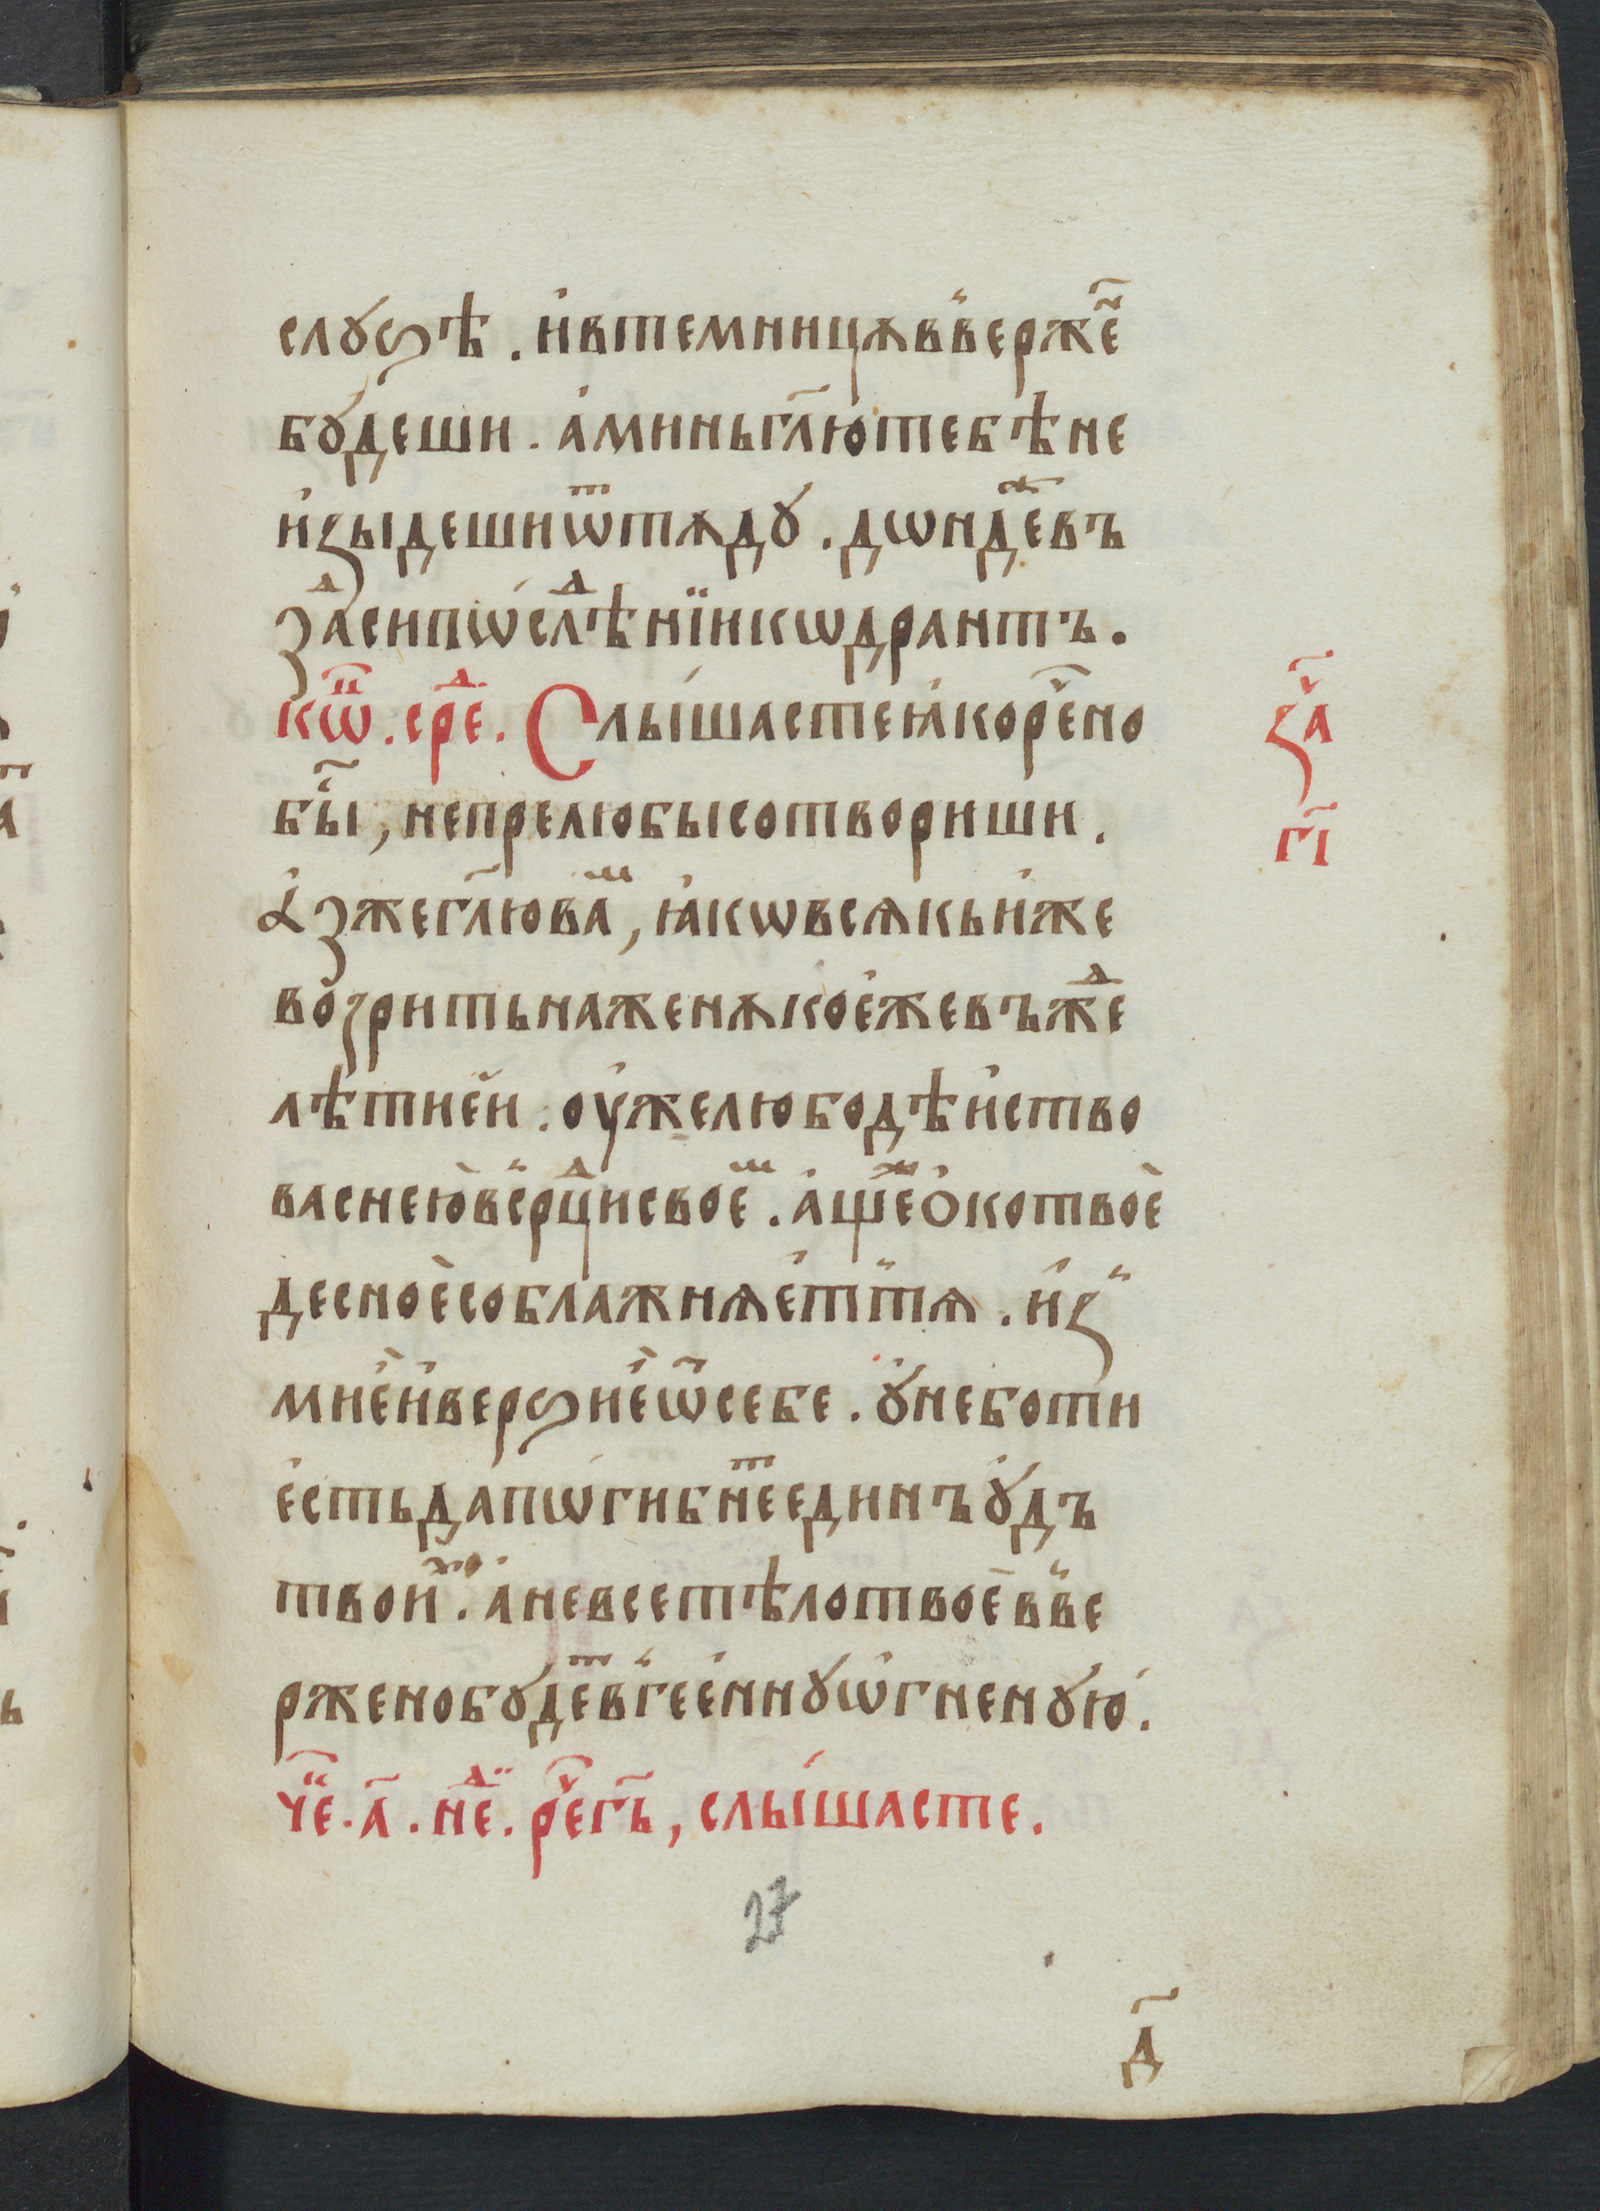 слꙋѕѣ . и҆втемницѫв̾верже҃
бꙋдеши . а҆миньгл҃ютебѣне
и҆ꙁыдешиѿтѫдꙋ . дѡндⷤевъ
здⷶасипѡ́слⷣѣнїикѡдрантъ .
кѡⷩ҇ . срⷣе . Слы́шастеꙗ҆корече҇но
бы҃ , непрелюбысотвориши .
А҆зжегл҃ювⷨа , ꙗ҆кѡвсѧкьи҆же
воꙁритьнаженѫкое҆жевъжⷣе
лѣтией . оу҆желюбодѣи҆ство
васнеюв̾срⷣцисвоеⷨ . а҆щⷤео҆котвое
десноесоблажнѧе҆тт̾ѧ . и҆ꙁ̾
мией҆верѕиѐѿсебе . ꙋ҆неботи
е҆стьдапѡгибнⷮеединъꙋ҆дъ
твои҆ⷯ . а҆невсетѣлотвоев̾ве
рженобꙋдⷮев̾гее҆ннꙋѡ҆гненꙋю .
чⷩ҇е . а҃ . нⷣе . рⷱ҇егь҃ , слы́шасте .
ꙁⷱ҇а
гі҃
27
д҃